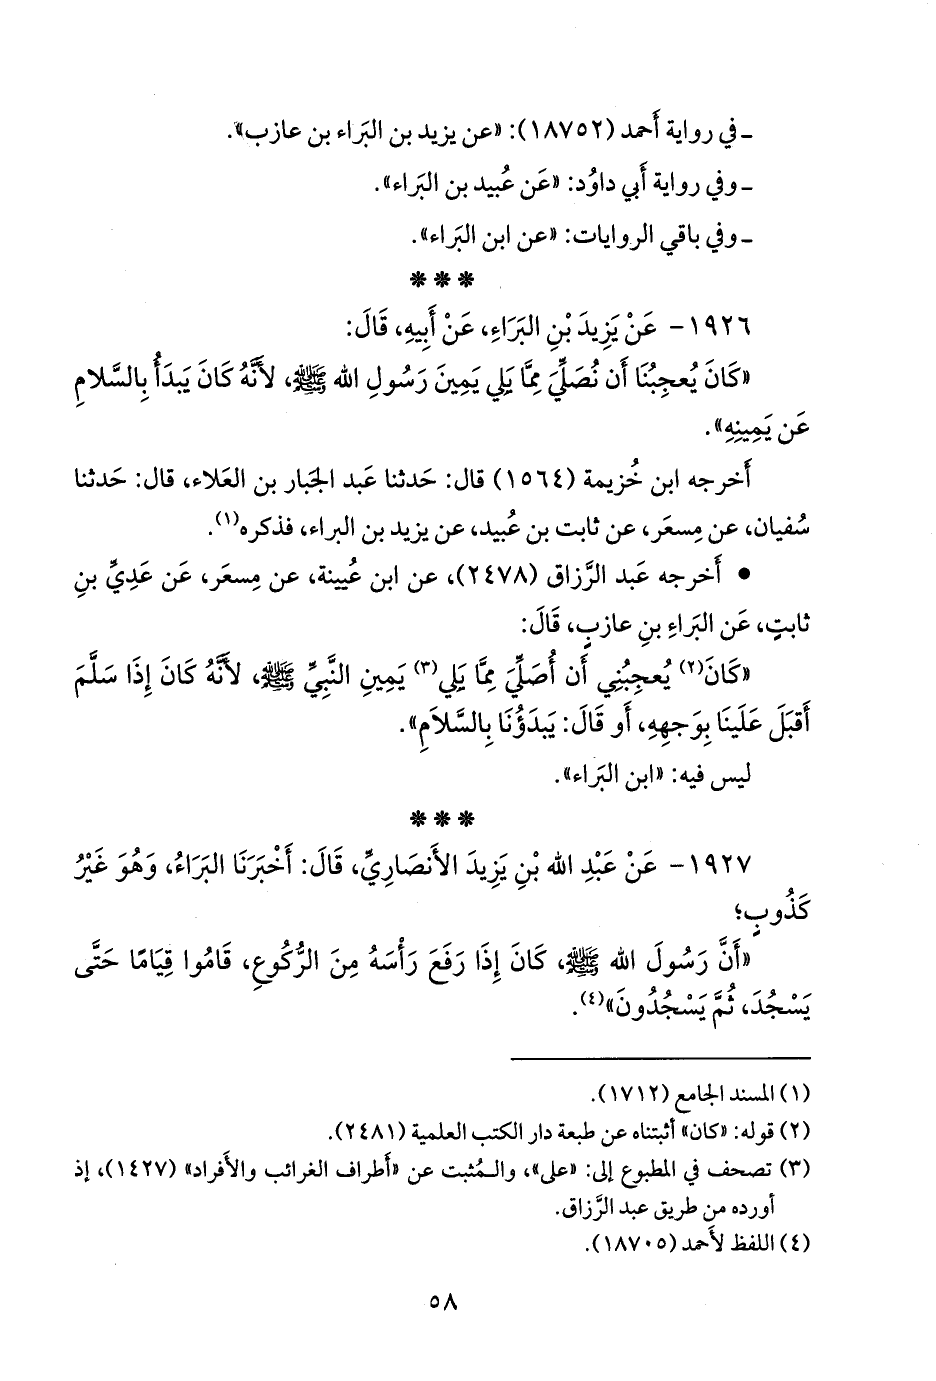 ـ في رواية أَحمد (١٨٧٥٢): «عن يزيد بن البَراء بن عازب».
ـ وفي رواية أَبي داوُد: «عَن عُبيد بن البَراء».
ـ وفي باقي الروايات: «عن ابن البَراء».
* * *
١٩٢٦- عَنْ يَزِيدَ بْنِ البَرَاءِ، عَنْ أَبِيهِ، قَالَ:
«كَانَ يُعجِبُنَا أَن نُصَلِّيَ مِمَّا يَلِي يَمِينَ رَسُولِ الله ﷺ، لأَنَّهُ كَانَ يَبدَأُ بِالسَّلامِ
عَن يَمِينِهِ».
أَخرجه ابن خُزيمة (١٥٦٤) قال: حَدثنا عَبد الجَبار بن العَلاء، قال: حَدثنا
سُفيان، عن مِسعَر، عن ثابت بن عُبيد، عن يزيد بن البراء، فذكره(١).
• أَخرجه عَبد الرَّزاق (٢٤٧٨)، عن ابن عُيينة، عن مِسعَر، عَن عَدِيِّ بنِ
ثابتٍ، عَن البَراءِ بنِ عازبٍ، قَالَ:
«كَانَ(٢) يُعجِبُنِي أَن أُصَلِّيَ مِمَّا يَلِي(٣) يَمِينِ النَّبِيِّ ﷺ، لأَنَّهُ كَانَ إِذَا سَلَّمَ
أَقبَلَ عَلَينَا بِوَجهِهِ، أَو قَالَ: يَبدَؤُنَا بِالسَّلاَمِ».
ليس فيه: «ابن البَراء».
* * *
١٩٢٧- عَنْ عَبْدِ الله بْنِ يَزِيدَ الأَنصَارِيِّ، قَالَ: أَخْبَرَنَا البَرَاءُ، وَهُوَ غَيْرُ
كَذُوبٍ؛
«أَنَّ رَسُولَ الله ﷺ، كَانَ إِذَا رَفَعَ رَأْسَهُ مِنَ الرُّكُوعِ، قَامُوا قِيَامًا حَتَّى
يَسْجُدَ، ثُمَّ يَسْجُدُونَ»(٤).
(١) المسند الجامع (١٧١٢).
(٢) قوله: «كان» أثبتناه عن طبعة دار الكتب العلمية (٢٤٨١).
(٣) تصحف في المطبوع إلى: «على»، والـمُثبت عن «أَطراف الغرائب والأَفراد» (١٤٢٧)، إذ
أورده من طريق عبد الرَّزاق.
(٤) اللفظ لأَحمد (١٨٧٠٥).
٥٨